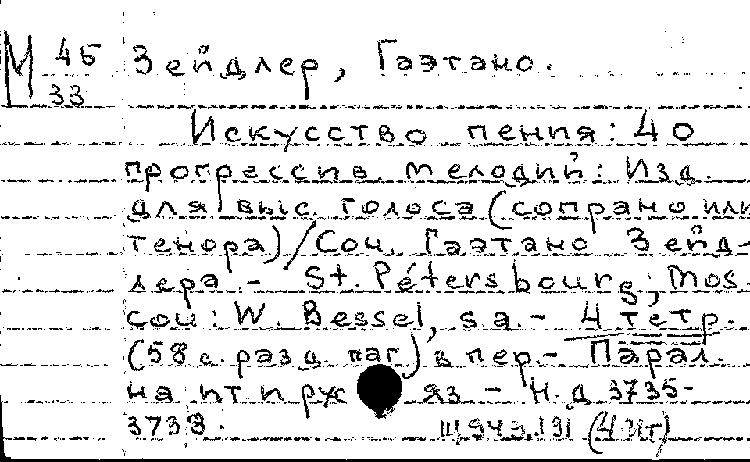 М 45 Зейдлер, Гаэтано.
33
Искусство пения: 40
прогрессив. мелодий: Изд.
для выс. голоса (сопрано или
тенора) / Соч. Гаэтано Зейд-
лера. - St. Pétersbourg; Mos-
cou: W. Bessel, s.a. - 4 тетр.
(58 с. разд. паг.) в пер. - Парал.
на ит яз - Н.д 3735-
3738.